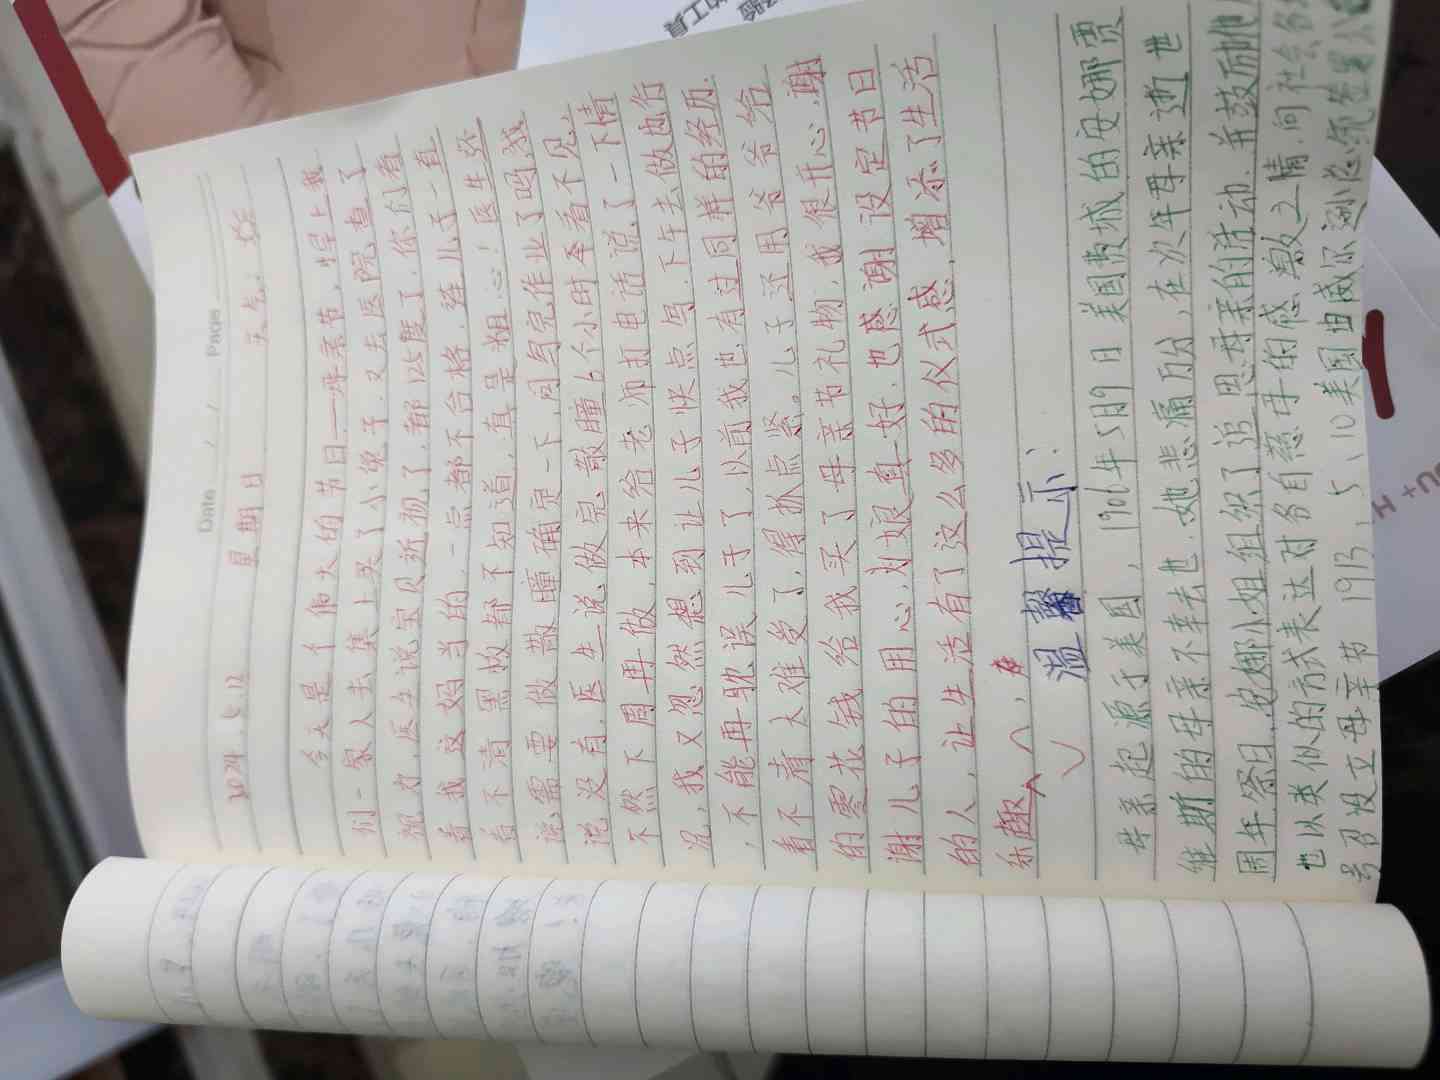 Date / / Page
2024.5.12 星期日 天气：
今天是个伟大的节日——母亲节，早上我
们一家人去集上买了小兔子，又去医院查了
视力，医生说宝贝近视了，都125度了，你们看
看我这妈当的，一点都不合格，连儿子一直
看不清黑板都不知道，真是粗心！医生还
说需要做散瞳确定一下，问写完作业了吗，我
说没有，医生说做完散瞳6个小时本看不见，
不然下周再做，本来给老师打电话说了一下情
况，我又忽然想到让儿子快点写，下午去做也行
，不能再耽误儿子了，以前我也有过同样的经历
看不清太难受了，得抓点紧。儿子还用爷爷给
的零花钱给我买了母亲节礼物，我很开心，谢
谢儿子的用心，大娘真好，也感谢设定节日
的人，让生活有了这么多的仪式感，增添了生活
乐趣
温馨提示：
母亲起源于美国，1906年5月9日美国费城的安娜贾
维斯的母亲不幸去世，她悲痛万分，在次年母亲逝世
周年祭日，安娜小姐组织了追思母亲的活动，并鼓励他
也以类似的方式表达对各自慈母的感激之情，向社会
号召设立母亲节 1913、5、10美国由威尔逊总统签署
经验
的工具